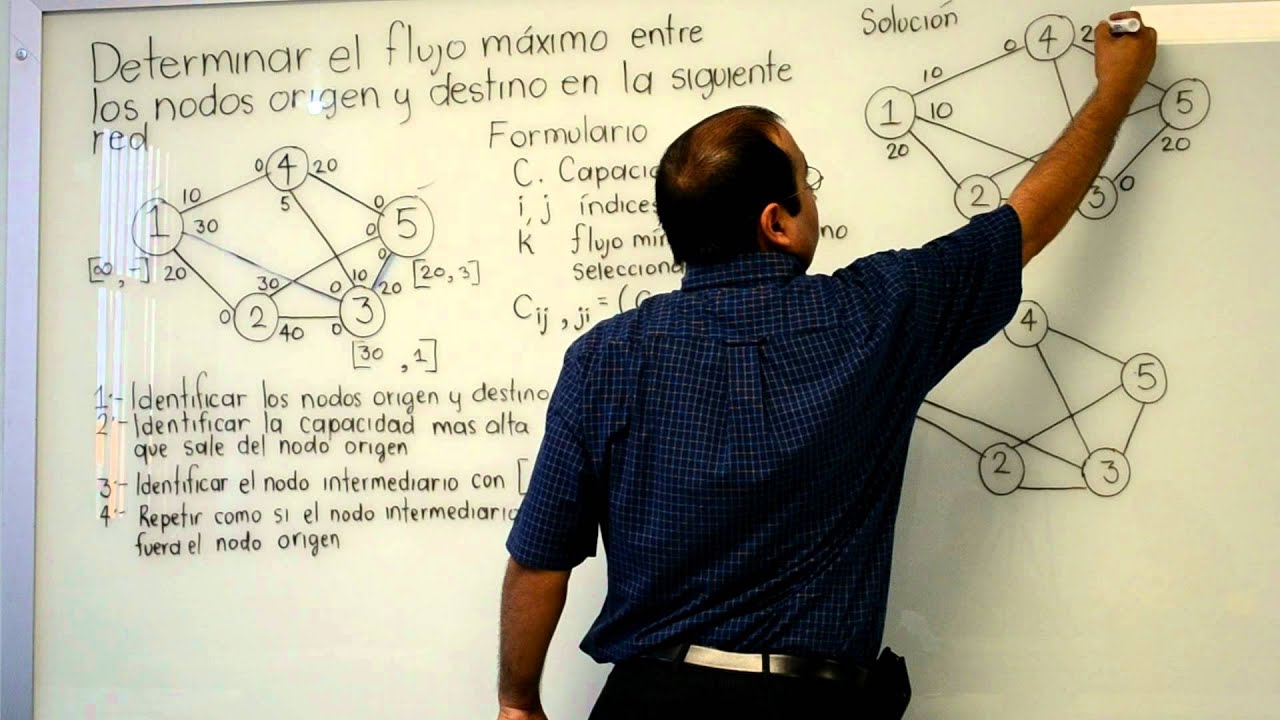 Determinar el flujo máximo entre
los nodos origen y destino en la siguiente
red
0 4 20
10 5 0
1 30 0 5
[∞, -] 20 0 [20, 3]
30 10
0 20
0 2 40 0 3
[30, 1]
1.- Identificar los nodos origen y destino
2.- Identificar la capacidad mas alta
que sale del nodo origen
3.- Identificar el nodo intermediario con [
4.- Repetir como si el nodo intermediario
fuera el nodo origen
Formulario
C.
i, j
k flujo
Cij,ji = (
Solución
0 4 2
10
1 10 5
20 20
2 3 0
4
5
2 3